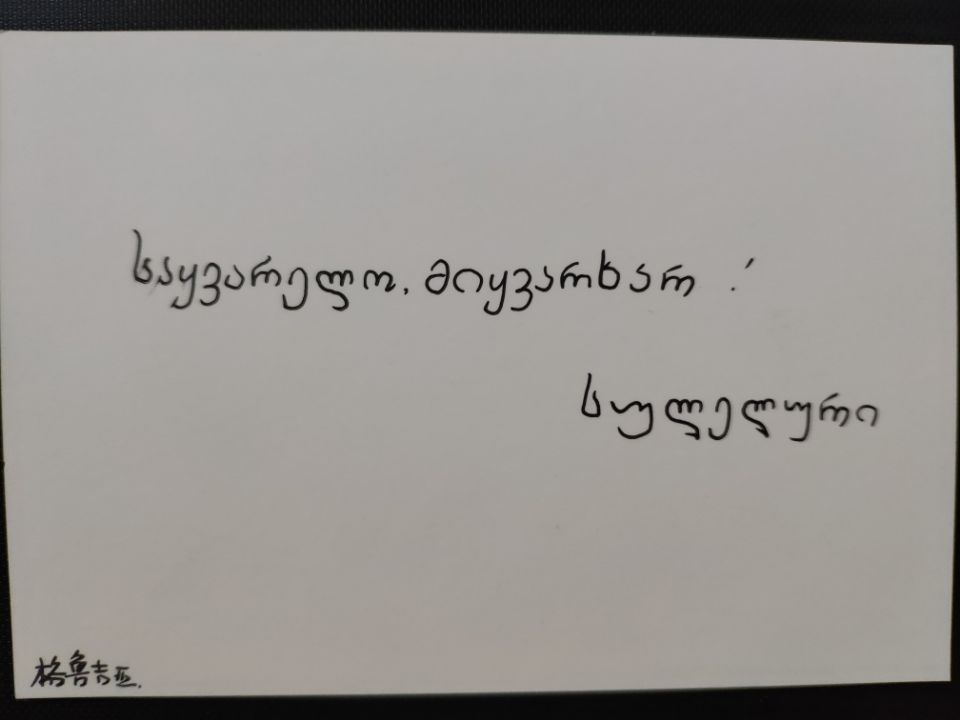 საყვარელო, მიყვარხარ !
სულელური
格鲁吉亚.